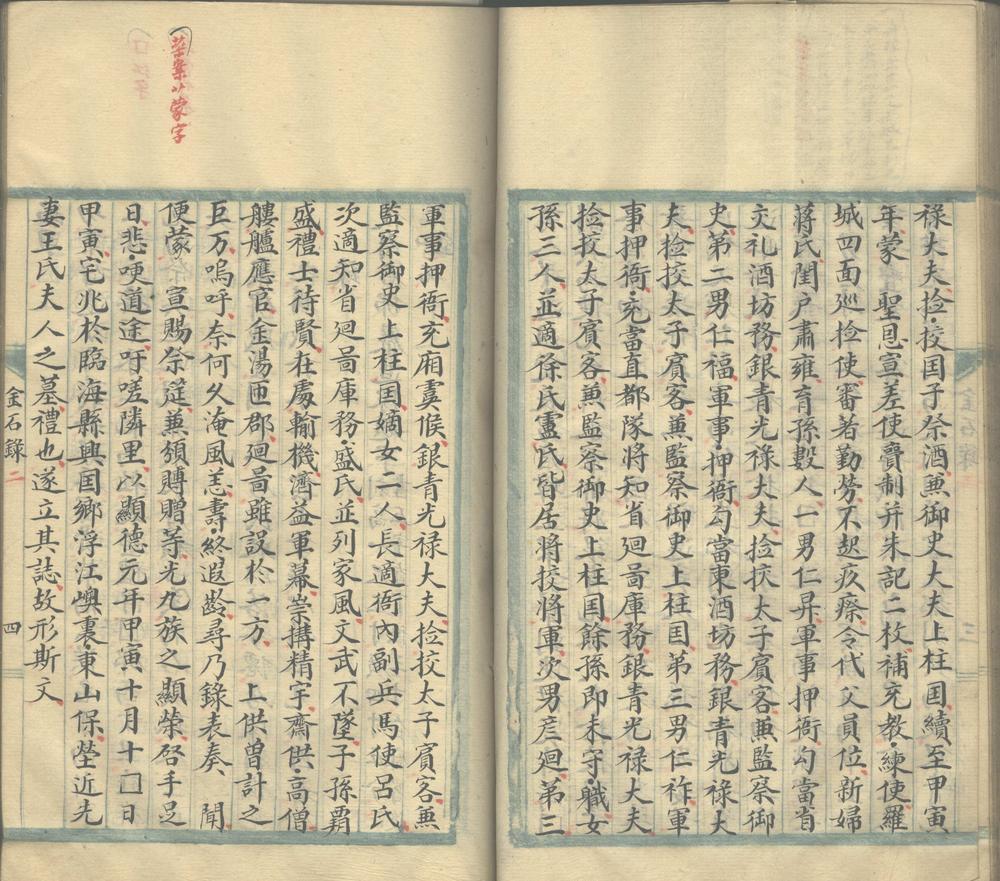 祿大夫捡挍囯子祭酒兼御史大夫上柱囯續至甲寅
年蒙 聖恩宣差使賷制并朱記二枚補充教練使羅
城四面巡捡使審著勤劳不起疚瘵令代父員位新婦
蒋氏閨户肅雍育孫數人一男仁昇軍事押衙勾當省
文礼酒坊務銀青光祿大夫捡挍太子賓客兼監察御
史第二男仁福軍事押衙勾當東酒坊務銀青光祿大
夫捡挍太子賓客兼監察御史上柱囯第三男仁祚軍
事押衙充當直都隊將知省廻啚庫務銀青光禄大夫
捡挍太子賓客兼監察御史上柱囯餘孫即未守職女
孫三人並適徐氏盧氏皆居將挍將軍次男彦廻第三
軍事押衙充廂虞候銀青光禄大夫捡挍太子賓客兼
監察御史上柱囯嫡女二人長適衙內副兵馬使呂氏
次適知省廻啚庫務盛氏並列家風文武不墜子孫霸
盛禮士待賢在處輸機濟益軍幕崇搆精宇齋供高僧
艛艫應官金湯匝郡廻啚雖設於一方 上供曽計之
巨万嗚呼奈何久淹風恙壽終遐齡尋乃錄表奏 聞
便蒙 宣賜祭筵兼頒賻贈等光九族之顯榮啓手足
日悲哽道途吁嗟隣里以顯德元年甲寅十月十囗日
甲寅宅兆於臨海縣興囯鄉浮江嶼裏東山保塋近先
妻王氏夫人之墓禮也遂立其誌故形斯文
金石錄 二 四
案以蒙字